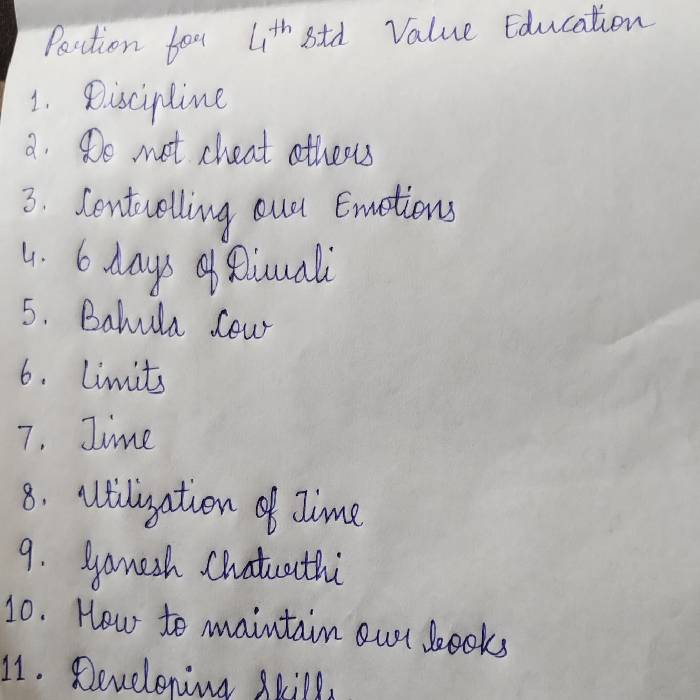 Portion for 4th Std Value Education
1. Discipline
2. Do not cheat others
3. Controlling our Emotions
4. 6 days of Diwali
5. Bahula Cow
6. Limits
7. Time
8. Utilization of Time
9. Ganesh Chaturthi
10. How to maintain our books
11. Developing Skills